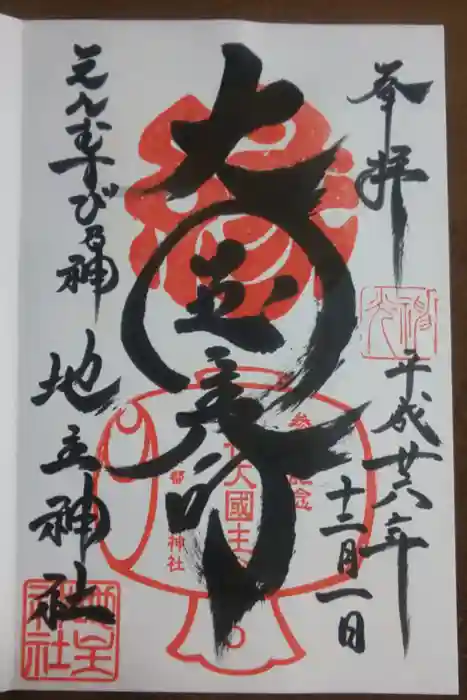 奉拝
平成廿六年
十二月一日
大国主命
えんむすびの神
地主神社
参拝記念
大國主命
京都
地主神社
神光
地主神社